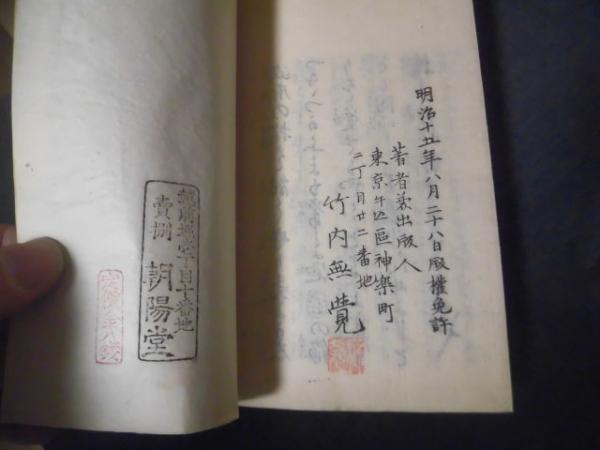 明治十五年八月二十八日版權免許
著者兼出版人
東京牛込區神樂町
二丁目廿二番地
竹内無覺
賣捌
朝陽堂